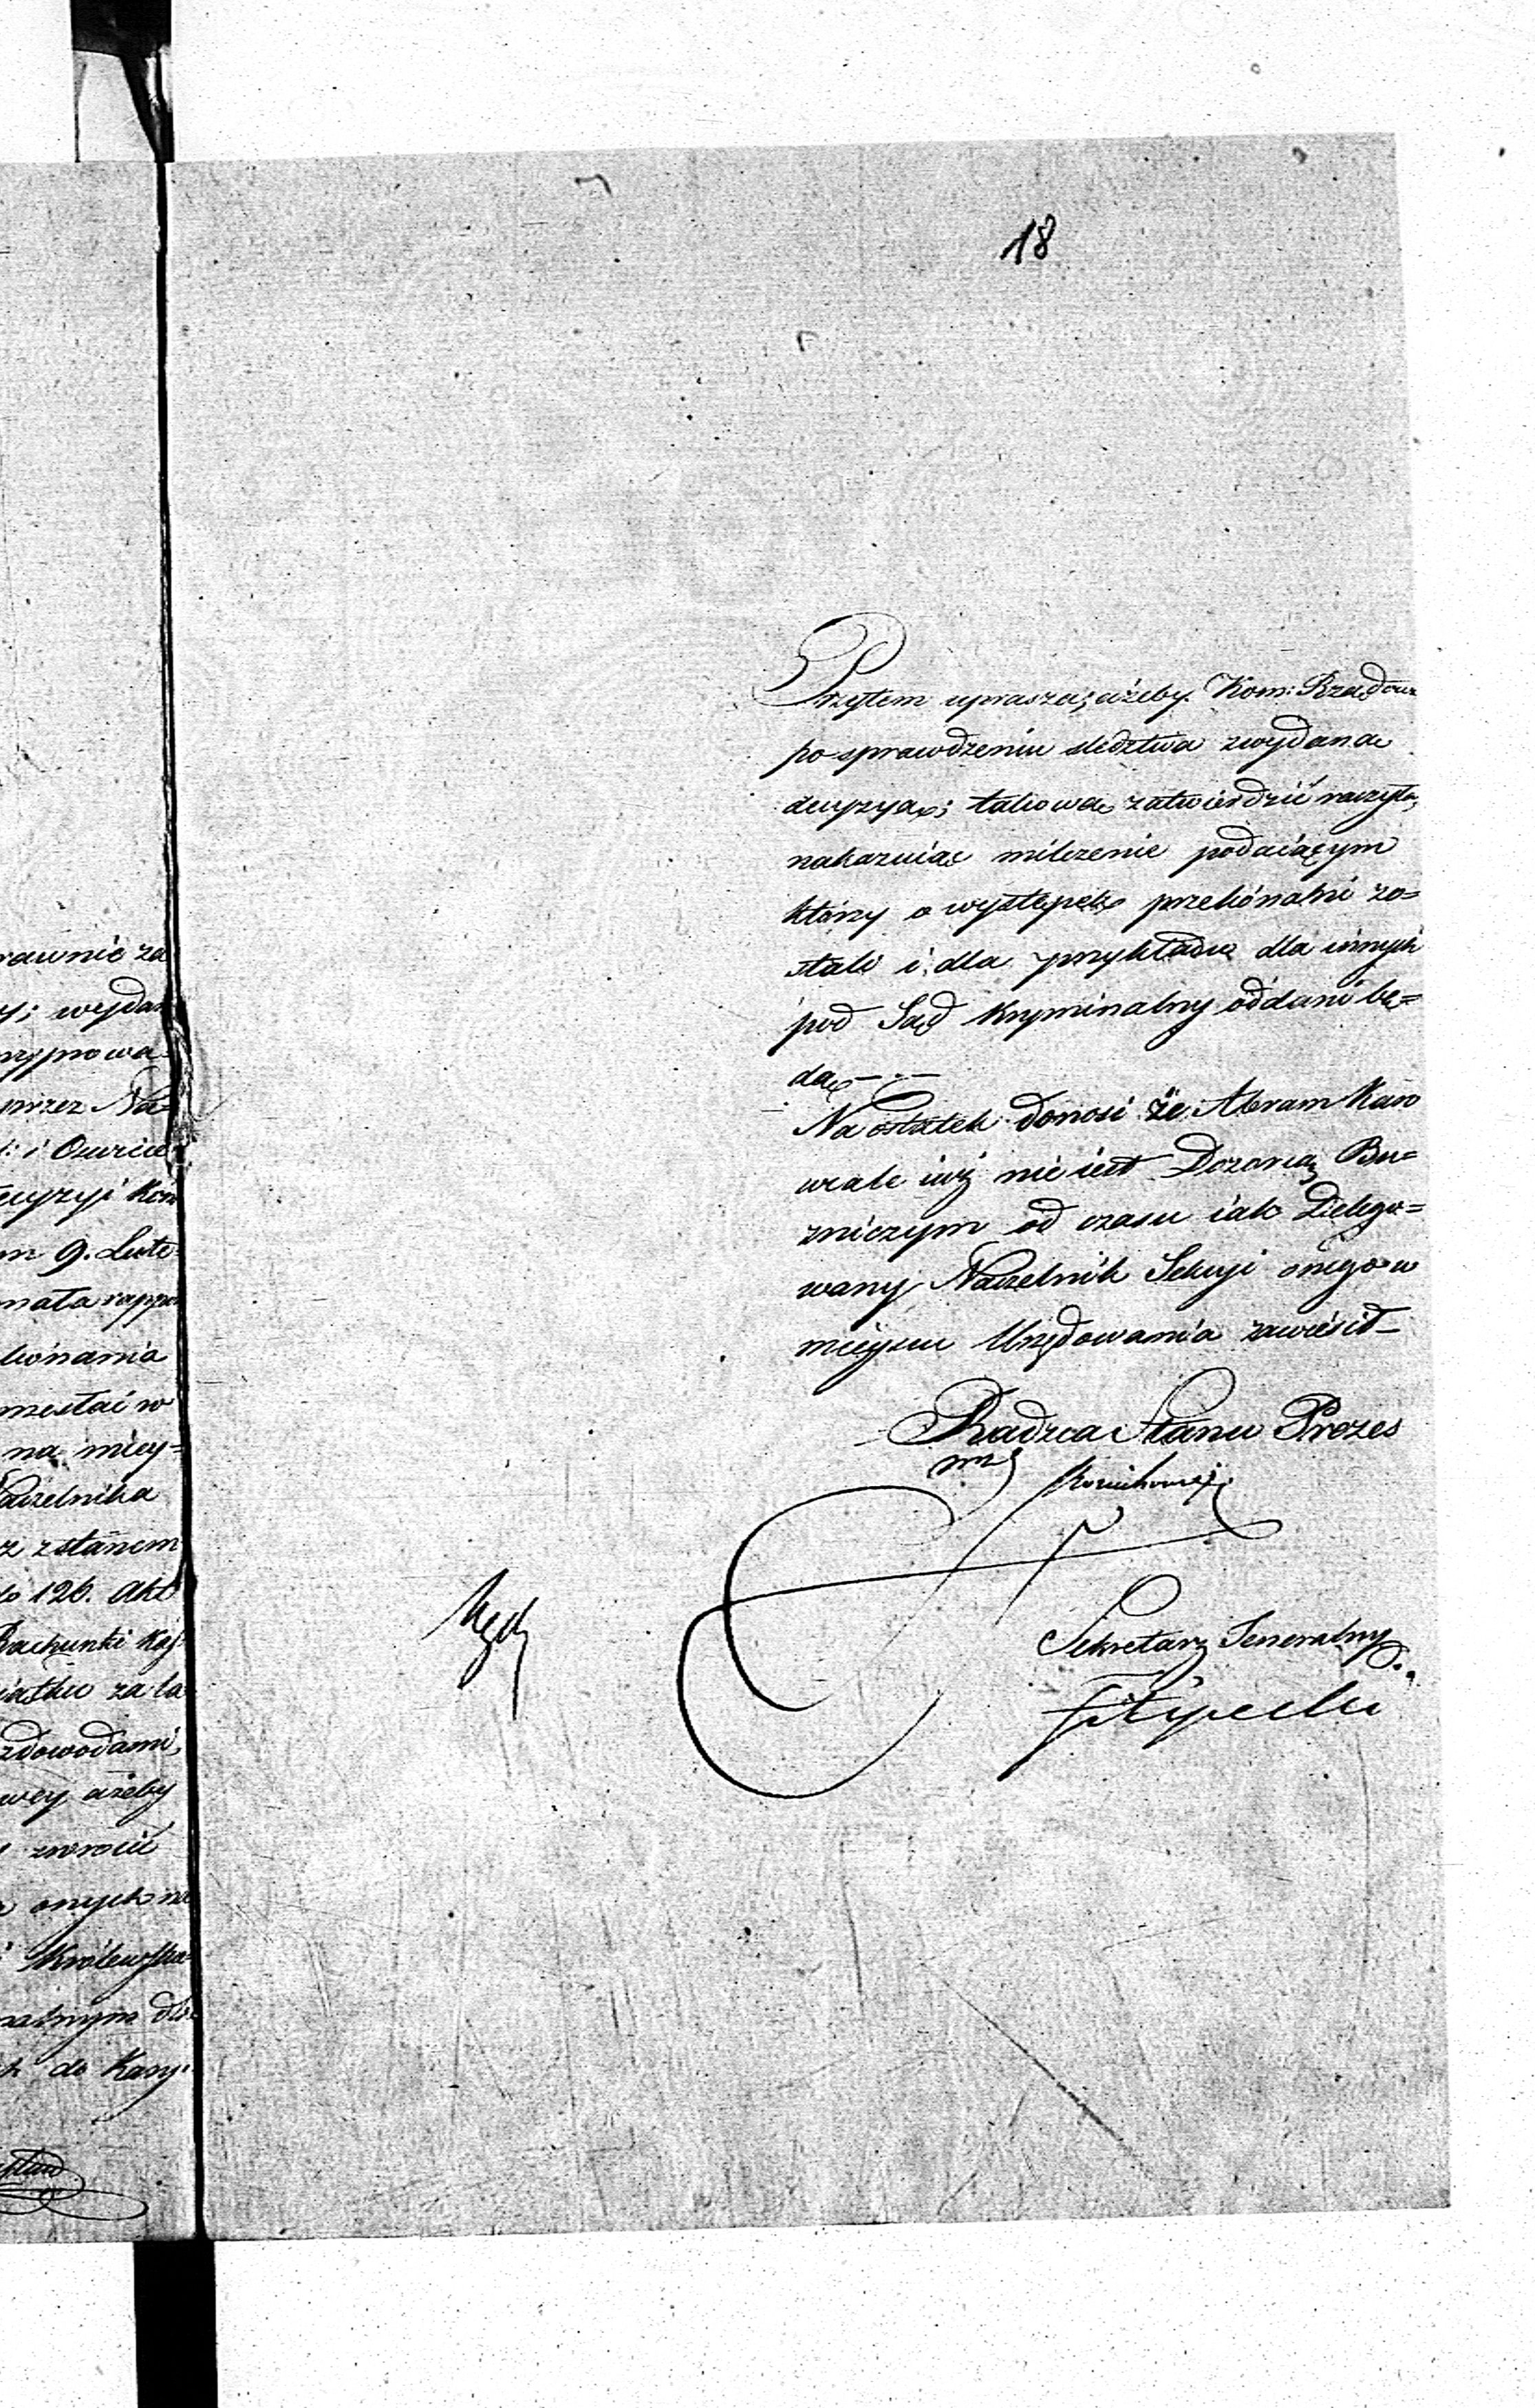 18
rawnie za
y; wydan
rzyprowa=
przez Na=
i Oświe
ecyzyi Kom
m 9. Lute=
nała rappo
konania
mestai w
na miey=
Naczelnika
z zstanem
do 126. Akt
Rachunki Kas
iątku za la
zdowodami,
wey ażeby
zwrócić
onych na
Królewska
ralnym dla
do Kasy
Przytem uprasza; ażeby Kom: Rządowa
po sprawdzeniu sledztwa zwydaną
decyzyą; takową zatwierdzić raczyła,
nakazuiąc milczenie podaiącym
który o występek przekónalni zo=
stali i dla przykładu dla innych
pod Sąd Kryminalny oddani bę=
dą —
Na ostatek donosi że Abram Kaw
wale iuż nie iest Dozorcą Bu=
zniczym od czasu iak Delego=
wany Naczelnik Sekcyi onego w
mieyscu Urzędowania zawiesił —
Radzca Stanu Prezes
mz
Sekretarz Jeneralny
Filipecki